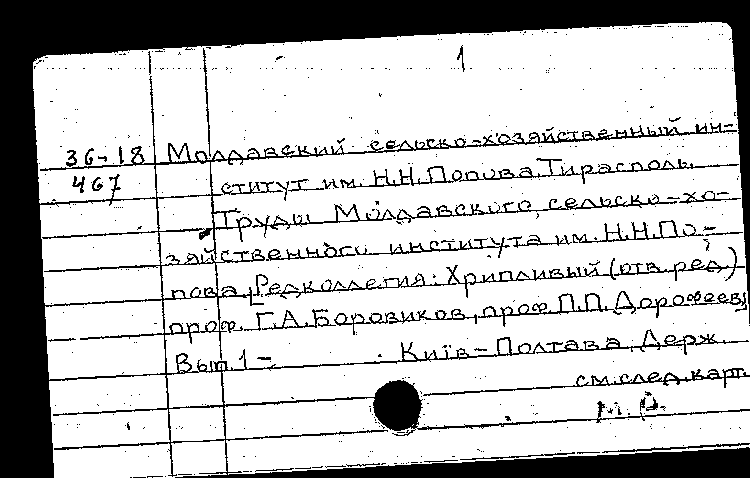 1
36-18 Молдавский сельско-хозяйственный ин-
467 ститут им. Н.Н. Попова. Тирасполь.
Труды Молдавского сельско-хо-
зяйственного института им. Н.Н. По-
пова. [Редколлегия: Хрипливый (отв. ред.)
проф. Г.А. Боровиков, проф. П.П. Дорофеев]
Вып. 1- . Київ-Полтава, Держ.
см. след. карт.
М. Р.